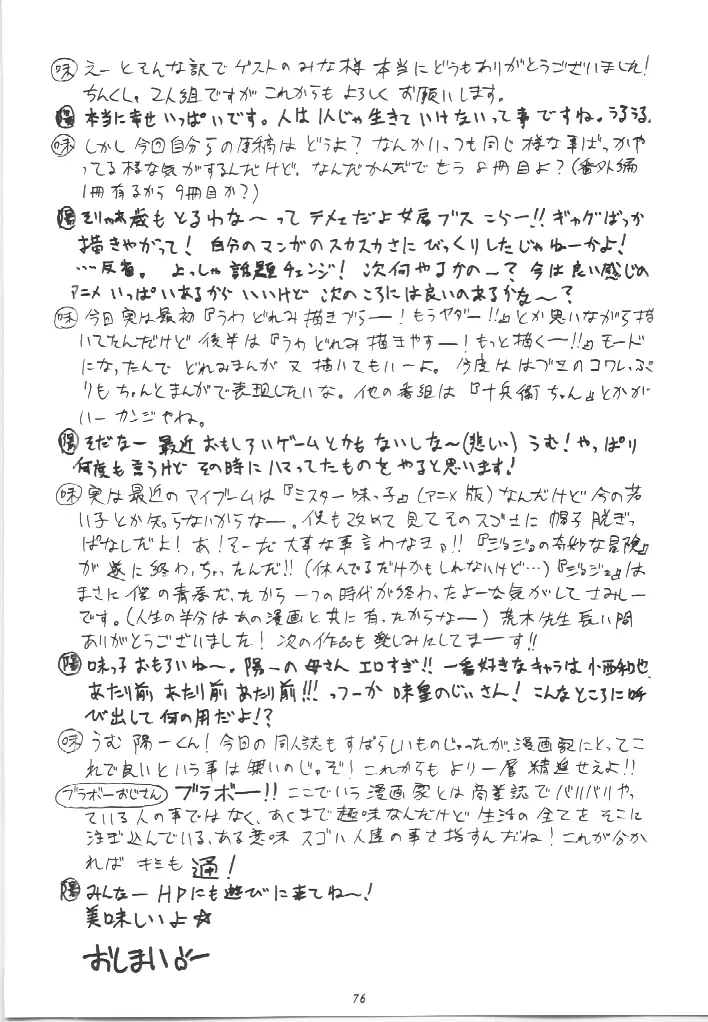 味 えーとそんな訳で ゲストのみな様 本当にどうもありがとうございました!
ちんくし。2人組ですが これからも よろしく お願いします。
陽 本当に幸せいっぱいです。人は1人じゃ生きていけないって事ですね。うるうる。
味 しかし今回自分らの原稿は どうよ? なんかいっつも同じ様な事ばっかや
ってる様な気がするんだけど。なんだかんだで もう 8冊目よ?(番外編
1冊有るから 9冊目か?)
陽 そりゃ歳もとるわな〜って テメェだよ女房ブス こらー!! ギャグばっか
描きやがって! 自分のマンガのスカスカさに びっくりしたじゃねーかよ!
…反省。 よっしゃ 話題チェンジ! 次何やるかの〜? 今は良い感じの
アニメ いっぱいあるから いいけど 次のころには良いのあるかな〜?
味 今回実は最初『うわ どれみ描きづらー! もうヤダー!!』とか思いながら描
いてたんだけど 後半は『うわ どれみ描きやすー! もっと描くー!!』モード
になったんで どれみまんが 又 描いてもいーよ。 今度は はづきのコワレっぷ
りも ちゃんとまんがで表現したいな。他の番組は『十兵衛ちゃん』とかが
いー カンジやね。
陽 そだなー 最近 おもしろいゲームとかもないしな〜(悲しい) うむ! やっぱり
何度も言うけど その時に ハマってたものを やると思います!
味 実は最近のマイブームは『ミスター味っ子』(アニメ版)なんだけど今の若
い子とか知らないからなー。僕も改めて見てそのスゴさに 帽子脱ぎっ
ぱなしだよ! あ! そーだ 大事な事言わなきゃ!!『ジョジョの奇妙な冒険』
が 遂に終わっちゃったんだ!!(休んでるだけかもしれないけど…)『ジョジョ』は
まさに 僕の青春だったから 一つの時代が終わったよーな気がして さみしー
です。(人生の半分はあの漫画と共に有ったからなー) 荒木先生 長い間
ありがとうございました! 次の作品も楽しみにしてまーす!!
陽 味っ子おもろいね〜。陽一の母さん エロすぎ!! 一番好きなキャラは 小西和也
あたり前 あたり前 あたり前!!! っつーか 味皇のじいさん! こんなところに呼
び出して 何の用だよ!?
味 うむ 陽一くん! 今回の同人誌もすばらしいものじゃったが、漫画記にとってこ
れで良いという事は無いのじゃぞ! これからも より一層 精進せえよ!!
ブラボーおじさん ブラボー!! ここでいう漫画家とは 商業誌でバリバリや
ている人の事ではなく、あくまで趣味なんだけど 生活の全てをそこに
注ぎ込んでいる、ある意味 スゴい人達の事を指すんだね! これが分か
れば キミも 通!
陽 みんなー HPにも遊びに来てね〜!
美味しいよ☆
おしまい
76